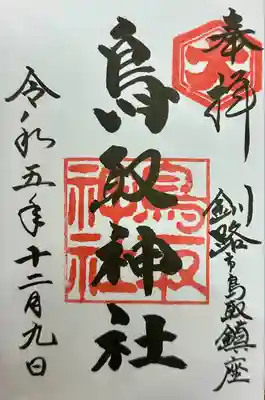 奉拝
釧路市鳥取鎮座
鳥取神社
鳥取
神社
令和五年十二月九日